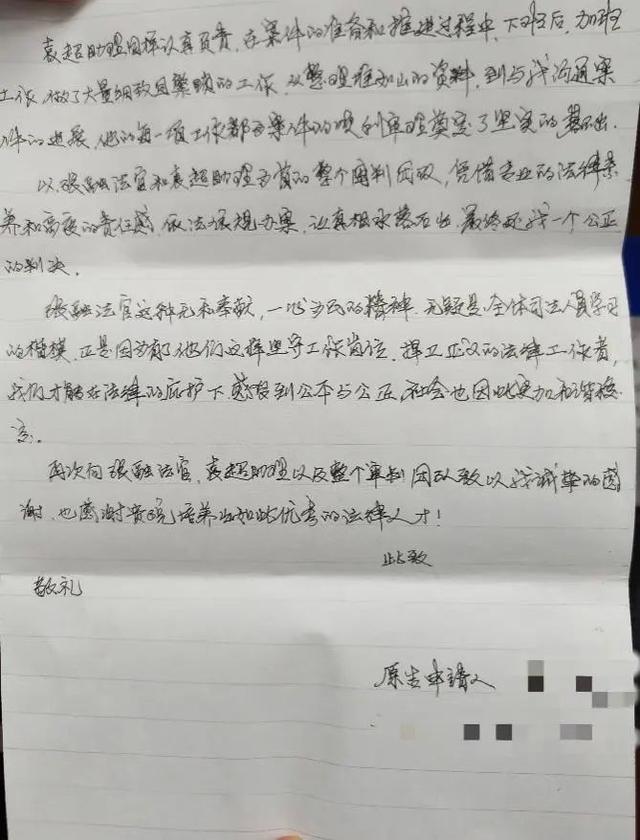 袁超助理同样认真负责,在案件的准备和推进过程中,下班后,加班
工作,做了大量细致且繁琐的工作,从整理堆如山的资料,到与我沟通案
件的进展,他的每一项工作都为案件的顺利审理奠定了坚实的基础.
以张融法官和袁超助理为首的整个团判团队,凭借专业的法律素
养和高度的责任感,依法依规办案,让真相水落石出,最终还我一个公正
的判决.
张融法官这种无私奉献,一心为民的精神,无疑是全体司法人员学习
的楷模,正是因为有他们这样坚守工作岗位,捍卫正义的法律工作者,
我们才能在法律的庇护下,感受到公平与公正,社会也因此更加和谐稳
定.
再次向张融法官,袁超助理以及整个审判团队致以我诚挚的感
谢,也感谢贵院培养出如此优秀的法律人才!
此致
敬礼
原告申请人